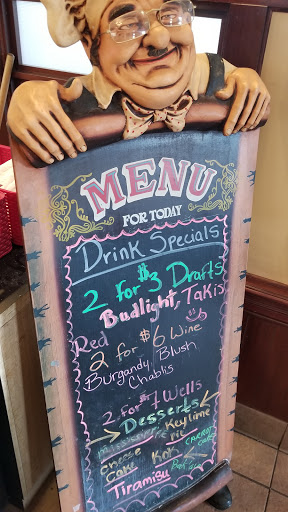 MENU
FOR TODAY
Drink Specials
2 for $3 Drafts
Budlight, Takis
Red
2 for $6 Wine
Burgandy, Blush
Chablis
2 for $7 Wells
Desserts
Key lime
Pie
Cheese
Cake
CARROT
CAKE
Tiramisu